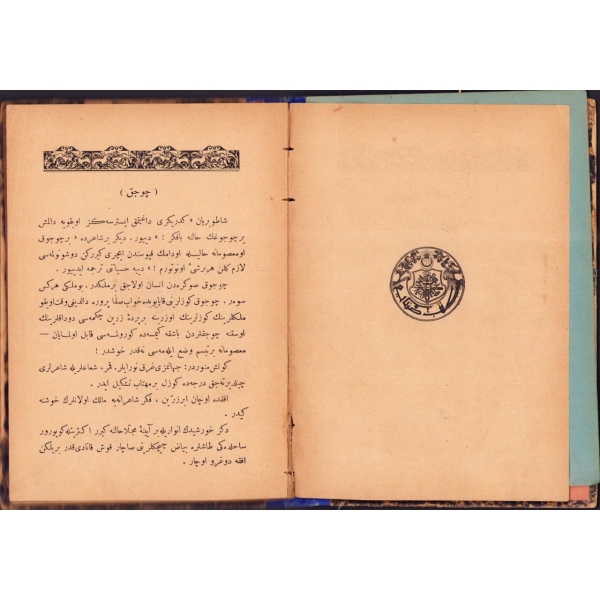 ( چوجق )
شاطوبریان « کدرلرکزی داغیتمق ایسترسه‌کز اویقویه دالمش
برچوجوغك حالنه باقکز ! » دییور . دیکر برشاعرده « برچوجوق
اومعصومانه حالیله اوده‌مك قپوسندن ایچری کیررکن دوشونولمه‌سی
لازم کلن هرشیئی اونوتورم ! » دییه حسیاتنی ترجمه ایدییور .
چوجوق صوکره‌دن انسان اولاجق برملکدر . بوملکی هرکس
سوه‌ر . چوجوق کوزلرینی قاپایوبده خواب صفا پروره دالدیغی وقت اویقو
ملکلرینك کوزلرینك اوزرینه برپرده زرین چکمه‌سی دوداقلرینك
اوستنه چوجقلردن باشقه کیمسه‌ده کورولمه‌سی قابل اولمایان —
معصومانه برتبسم وضع ایله‌مه‌سی نه‌قدر خوشدر !
کونش منوردر : جهانمزی غرق نور ایلر . قمر ، شعاعلریله شاعرلری
چیلدیرته‌جق درجه‌ده کوزل برمهتاب تشکیل ایدر .
افقده اوچان ابر زرین ، فکر شاعرانه‌یه مالك اولانلرك خوشنه
کیدر .
دکز خورشیدك انواریله برآیینهٔ مجلا حالنه کیرر اکثریتله کوپورور
ساحلده‌کی طاشلره بیاض چیچکلرینی صاچار قوش قنادی قدر بریلکن
افقه دوغرو اوچار .